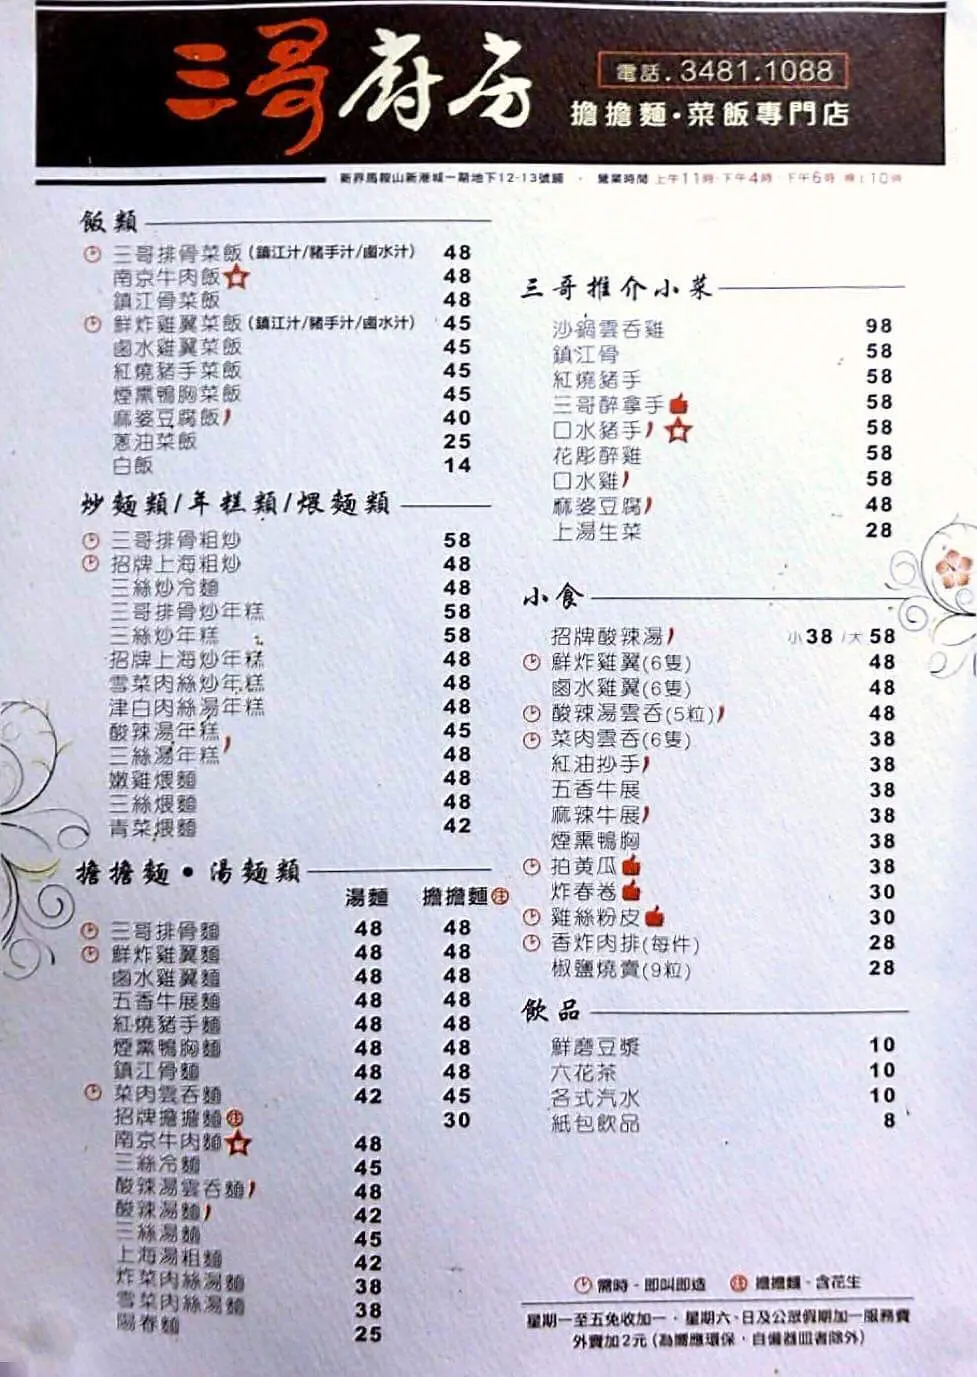 三哥廚房
電話.3481.1088
擔擔麵·菜飯專門店
新界馬鞍山新港城一期地下12-13號舖 · 營業時間 上午11時-下午4時·下午6時-晚上10時
飯類
三哥排骨菜飯(鎮江汁/豬手汁/鹵水汁) 48
南京牛肉飯 48
鎮江骨菜飯 48
鮮炸雞翼菜飯(鎮江汁/豬手汁/鹵水汁) 45
鹵水雞翼菜飯 45
紅燒豬手菜飯 45
煙熏鴨胸菜飯 45
麻婆豆腐飯 40
蔥油菜飯 25
白飯 14
炒麵類/年糕類/煨麵類
三哥排骨粗炒 58
招牌上海粗炒 48
三絲炒冷麵 48
三哥排骨炒年糕 58
三絲炒年糕 58
招牌上海炒年糕 48
雪菜肉絲炒年糕 48
津白肉絲湯年糕 48
酸辣湯年糕 45
三絲湯年糕 48
嫩雞煨麵 48
三絲煨麵 48
青菜煨麵 42
擔擔麵·湯麵類
湯麵 擔擔麵 注
三哥排骨麵 48 48
鮮炸雞翼麵 48 48
鹵水雞翼麵 48 48
五香牛展麵 48 48
紅燒豬手麵 48 48
煙熏鴨胸麵 48 48
鎮江骨麵 48 48
菜肉雲吞麵 42 45
招牌擔擔麵 注 30
南京牛肉麵 48
三絲冷麵 45
酸辣湯雲吞麵 48
酸辣湯麵 42
三絲湯麵 45
上海湯粗麵 42
炸菜肉絲湯麵 38
雪菜肉絲湯麵 38
陽春麵 25
三哥推介小菜
沙鍋雲吞雞 98
鎮江骨 58
紅燒豬手 58
三哥醉拿手 58
口水豬手 58
花彫醉雞 58
口水雞 58
麻婆豆腐 48
上湯生菜 28
小食
招牌酸辣湯 小38/大58
鮮炸雞翼(6隻) 48
鹵水雞翼(6隻) 48
酸辣湯雲吞(5粒) 48
菜肉雲吞(6隻) 38
紅油抄手 38
五香牛展 38
麻辣牛展 38
煙熏鴨胸 38
拍黃瓜 38
炸春卷 30
雞絲粉皮 30
香炸肉排(每件) 28
椒鹽燒賣(9粒) 28
飲品
鮮磨豆漿 10
六花茶 10
各式汽水 10
紙包飲品 8
需時-即叫即造 注 擔擔麵-含花生
星期一至五免收加一·星期六、日及公眾假期加一服務費
外賣加2元(為響應環保,自備器皿者除外)